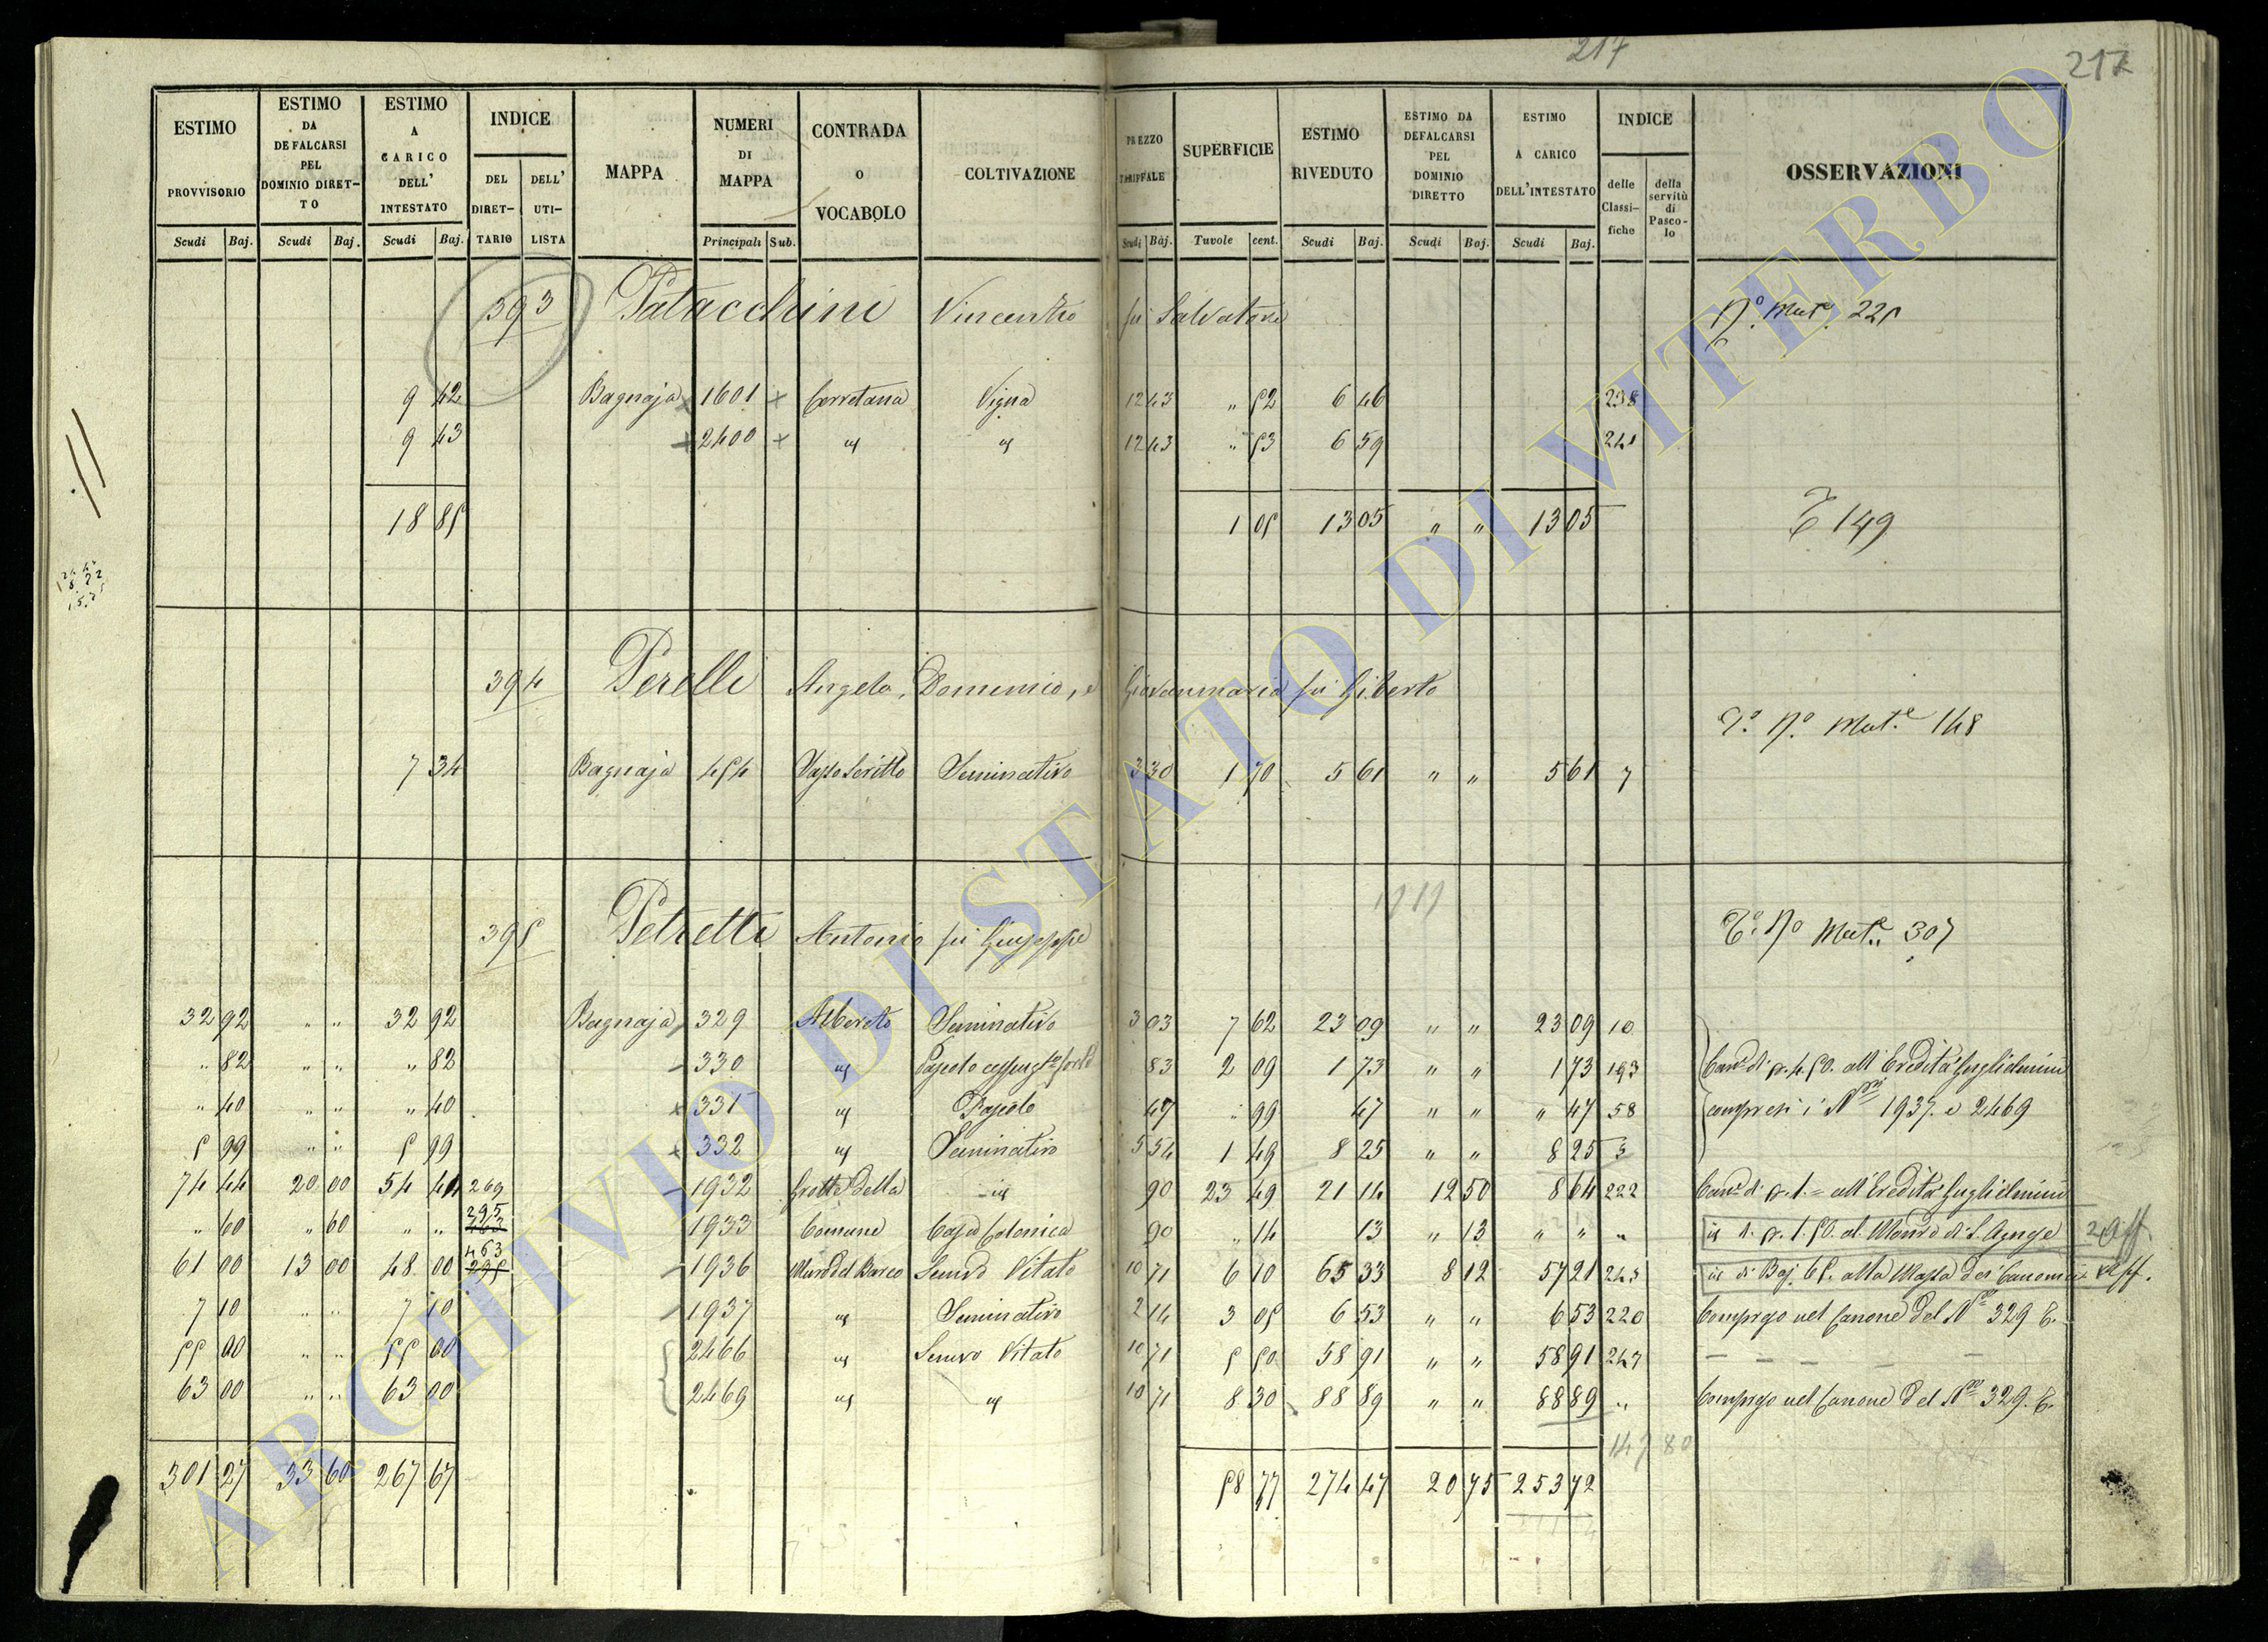 217 217
ESTIMO PROVVISORIO | ESTIMO DA DEFALCARSI PEL DOMINIO DIRETTO | ESTIMO A CARICO DELL' INTESTATO | INDICE DEL DIRETTARIO | DELL' UTILISTA | MAPPA | NUMERI DI MAPPA | CONTRADA O VOCABOLO | COLTIVAZIONE | PREZZO TARIFFALE | SUPERFICIE | ESTIMO RIVEDUTO | ESTIMO DA DEFALCARSI PEL DOMINIO DIRETTO | ESTIMO A CARICO DELL'INTESTATO | INDICE delle Classifiche | della servitù di Pascolo | OSSERVAZIONI
Scudi Baj. | Scudi Baj. | Scudi Baj. | Principali Sub. | Scudi Baj. | Tavole cent. | Scudi Baj. | Scudi Baj. | Scudi Baj.
393 Patacchini Vincenzo fu Salvatore Nº Mut.e 225
9 42 Bagnaja 1601 Cerretana Vigna 12 43 " 52 6 46 238
9 43 2400 id id 12 43 " 53 6 59 241
18 85 1 05 13 05 " " 13 05 149
394 Perelli Angelo, Domenico, e Giovanmaria fu Giberto
Tº Nº Mut.e 148
7 34 Bagnaja 454 Sasso Scritto Seminativo 3 30 1 70 5 61 " " 5 61 7
395 Petretti Antonio fu Giuseppe Tº Nº Mut.e 307
32 92 " " 32 92 Bagnaja 329 Albereto Seminativo 3 03 7 62 23 09 " " 23 09 10
" 82 " " " 82 330 id Pascolo 83 2 09 1 73 " " 1 73 193 Can.e di s. 4.50. all' Eredità Guglielmini
" 40 " " " 40 331 id Pascolo 47 " 99 47 " " " 47 58 compresi i Nri 1937. e 2469
5 99 " " 5 99 332 id Seminativo 5 54 1 49 8 25 " " 8 25 3
74 44 20 00 54 44 269 1932 Grotte della id 90 23 49 21 14 12 50 8 64 222 Can.e di s. 1.= all'Eredità Guglielmini
" 60 " 60 " " 395 1933 Comune Casa Colonica 90 " 14 13 " 13 " " " id di s. 1.50. al Mon.ro di S. Agnese 2 aff
61 00 13 00 48 00 463 1936 Muro del Barco Semvo Vitato 10 71 6 10 65 33 8 12 57 21 243 id di Baj. 65. alla Massa dei Canonici aff.
7 10 " " 7 10 1937 id Seminativo 2 14 3 05 6 53 " " 6 53 220 Compreso nel Canone del No 329
55 00 " " 55 00 2466 id Semvo Vitato 10 71 5 50 58 91 " " 58 91 247 — — — — —
63 00 " " 63 00 2469 id id 10 71 8 30 88 89 " " 88 89 " Compreso nel Canone del No 329.
147 80
301 27 33 60 267 67 58 77 274 47 20 75 253 72
ARCHIVIO DI STATO DI VITERBO